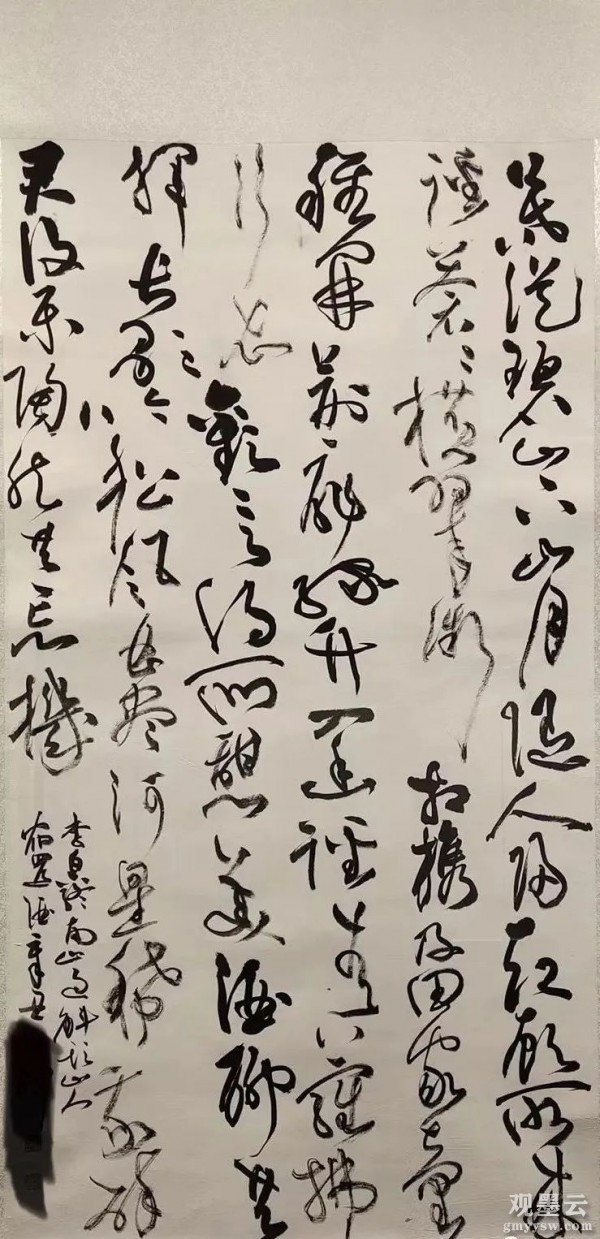 暮從碧山下山月隨人歸却顧所来
徑蒼々橫翠微相攜及田家童
稚開荆扉綠竹入幽徑青蘿拂
行衣歡言得所憩美酒聊共
揮長歌吟松風曲盡河星稀我醉
君復樂陶然共忘機
李白終南山過斛斯山人
宿置酒辛丑
观墨云
gmyysw.com